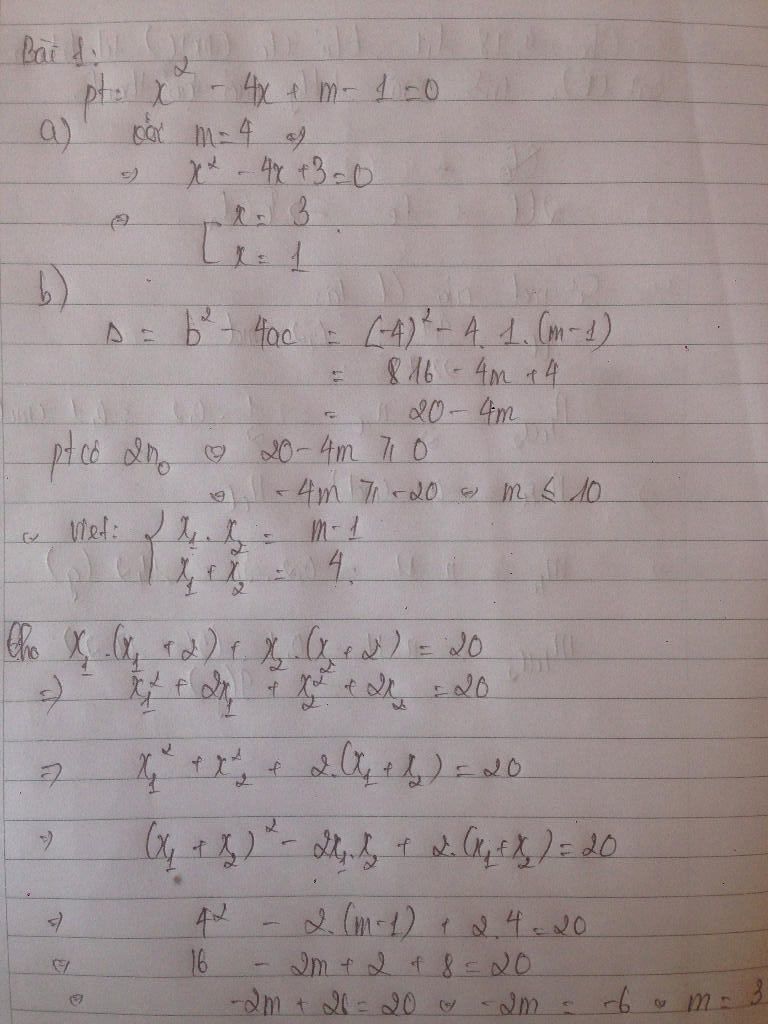 Bài 1:
pt: x² - 4x + m - 1 = 0
a) với m = 4 ⇒
⇒ x² - 4x + 3 = 0
⇔ [ x = 3
x = 1
b)
Δ = b² - 4ac = (-4)² - 4.1.(m-1)
= 16 - 4m + 4
= 20 - 4m
pt có 2n₀ ⇔ 20 - 4m ≥ 0
⇔ -4m ≥ -20 ⇔ m ≤ 10
⇒ viet: { x₁.x₂ = m-1
x₁ + x₂ = 4.
Cho x₁.(x₁ + 2) + x₂.(x₂ + 2) = 20
⇒ x₁² + 2x₁ + x₂² + 2x₂ = 20
⇒ x₁² + x₂² + 2.(x₁ + x₂) = 20
⇒ (x₁ + x₂)² - 2x₁.x₂ + 2.(x₁+x₂) = 20
⇒ 4² - 2.(m-1) + 2.4 = 20
⇔ 16 - 2m + 2 + 8 = 20
⇔ -2m + 26 = 20 ⇔ -2m = -6 ⇔ m = 3